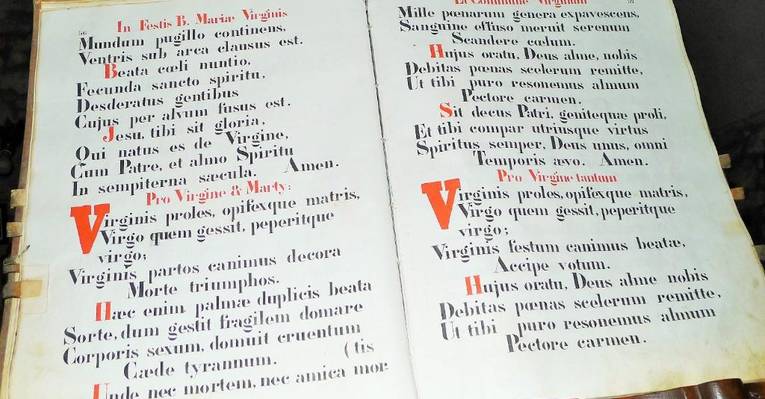 56
In Festis B. Mariæ Virginis
Mundum pugillo continens,
Ventris sub arca clausus est.
Beata cæli nuntio,
Fecunda sancto spiritu,
Desderatus gentibus
Cujus per alvum fusus est.
Jesu, tibi sit gloria,
Qui natus es de Virgine,
Cum Patre, et almo Spiritu
In sempiterna sæcula. Amen.
Pro Virgine & Marty:
Virginis proles, opifexque matris,
Virgo quem gessit, peperitque
virgo;
Virginis partos canimus decora
Morte triumphos.
Hæc enim palmæ duplicis beata
Sorte, dum gestit fragilem domare
Corporis sexum, domuit cruentum
Cæde tyrannum. (tis
Unde nec mortem, nec amica mor
Commune Virginum
Mille pœnarum genera expavescens,
Sanguine effuso meruit serenum
Scandere cœlum.
Hujus oratu, Deus alme, nobis
Debitas pœnas scelerum remitte,
Ut tibi puro resonemus almum
Pectore carmen.
Sit decus Patri, genitæque proli,
Et tibi compar utriusque virtus
Spiritus semper, Deus unus, omni
Temporis ævo. Amen.
Pro Virgine tantum
Virginis proles, opifexque matris,
Virgo quem gessit, peperitque
virgo;
Virginis festum canimus beatæ,
Accipe votum.
Hujus oratu, Deus alme nobis
Debitas pœnas scelerum remitte,
Ut tibi puro resonemus almum
Pectore carmen.